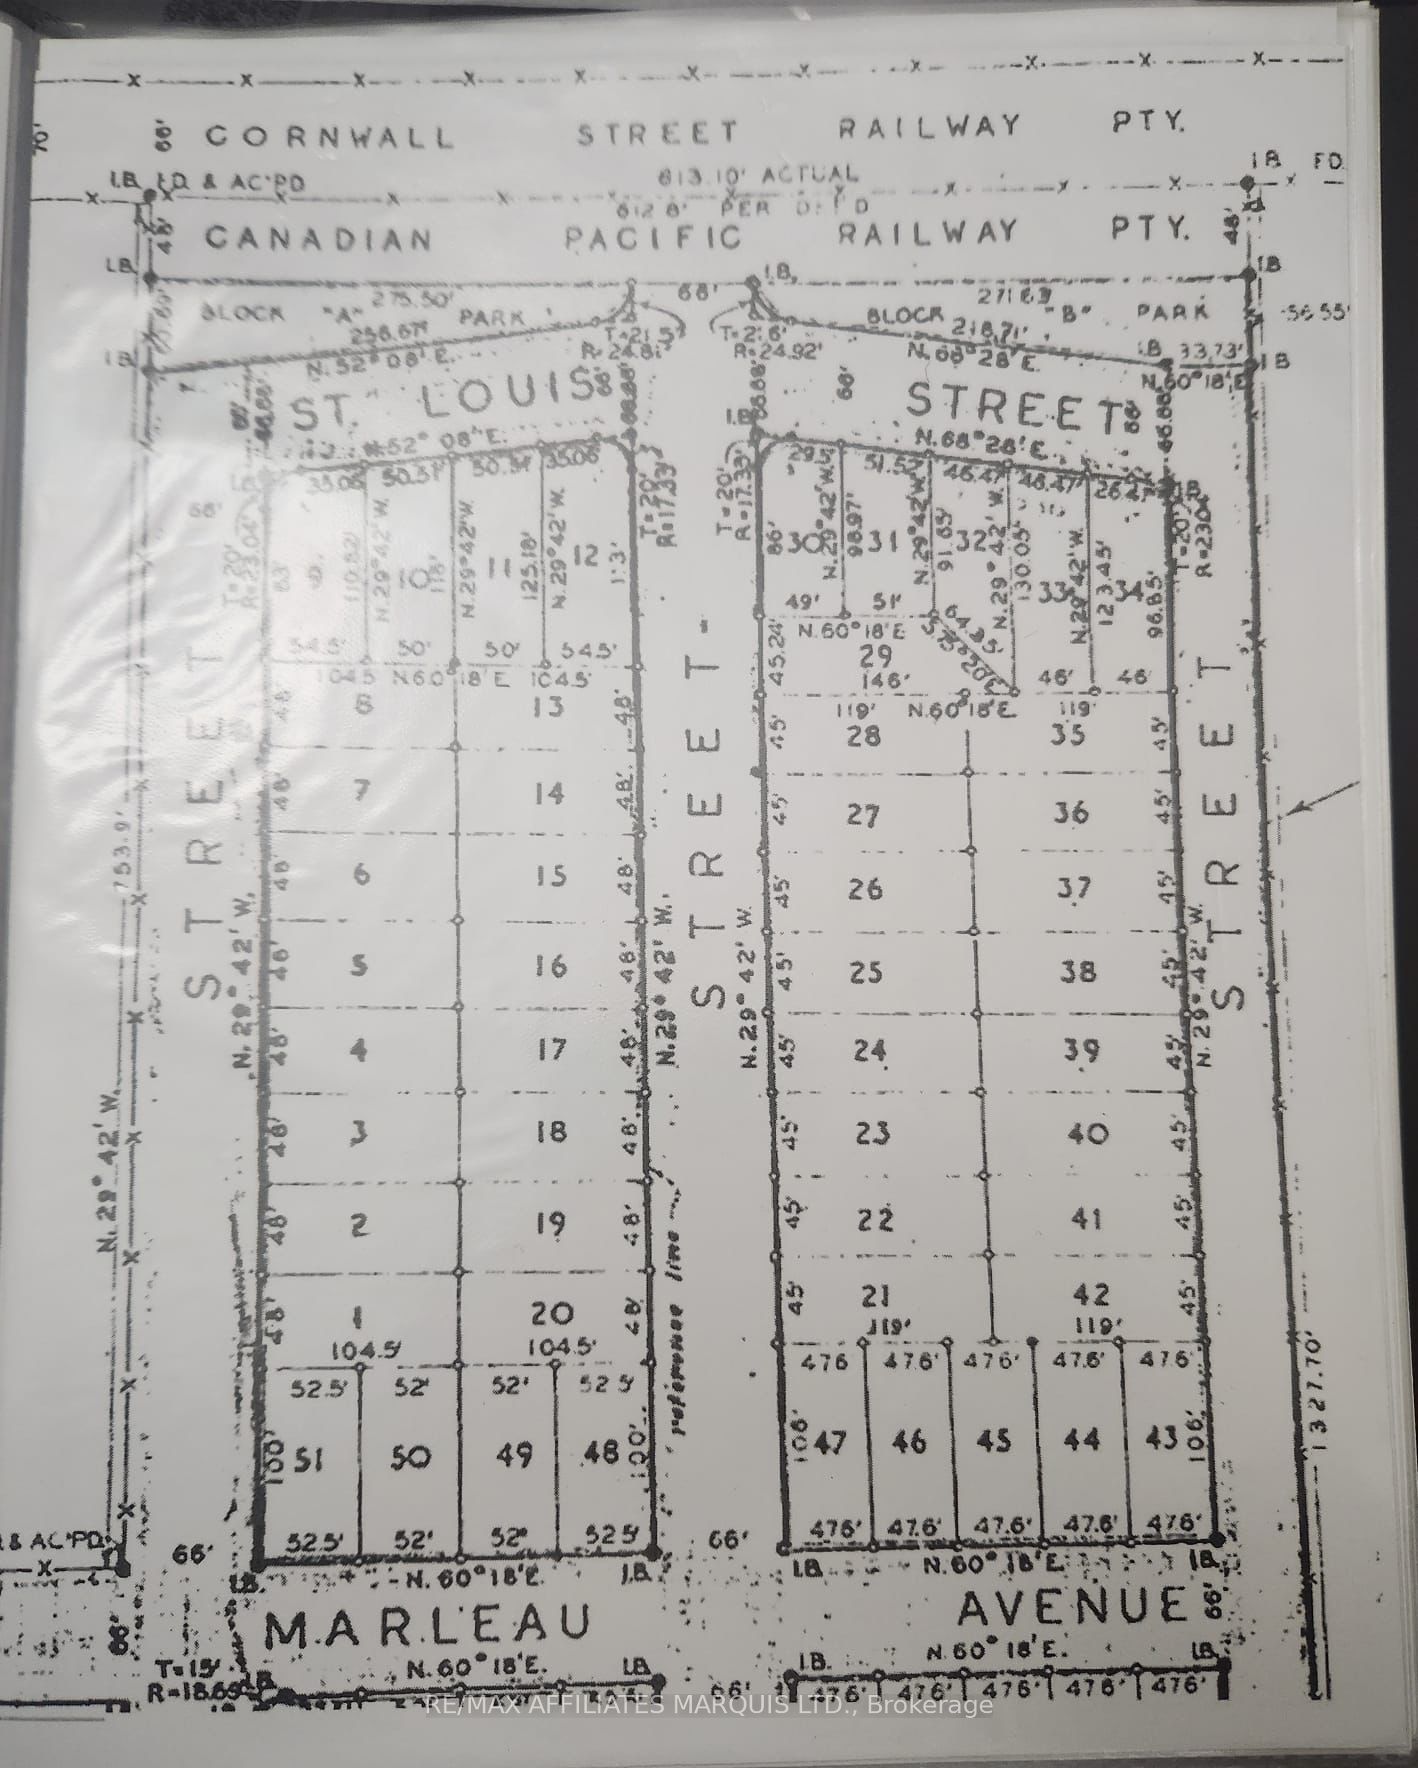 70'
66'
CORNWALL STREET RAILWAY PTY.
I.B. FD. & AC'PD
613.10' ACTUAL
I.B. FD.
612.8' PER
48'
CANADIAN PACIFIC RAILWAY PTY.
48'
I.B.
I.B.
I.B.
275.50'
66'
271.63'
BLOCK "A" PARK
BLOCK "B" PARK
56.55'
256.67'
218.71'
T=21.5'
R=24.81'
T=21.6'
R=24.92'
I.B.
N. 52° 08' E.
N. 68° 28' E.
I.B. 33.73' I.B.
N.60°18'E
66' 66.88'
66' 66.88'
66.88' 66'
66' 66.88'
ST. LOUIS STREET
I.B.
N.52° 08' E.
N. 68° 28' E.
35.06' 50.51' 50.51' 35.06'
29.5' 51.52' 46.47' 46.47' 26.47' I.B.
66'
T=20'
R=23.04'
T=20'
R=17.33'
T=20'
R=17.33'
T=20'
R=23.04'
63' 9 110.82' N.29°42'W. 10 118' N.29°42'W. 11 125.18' N.29°42'W. 12 113'
86' 30 N.29°42'W. 98.97' 31 N.29°42'W. 91.65' 32 N.29°42'W. 130.05' 33 N.29°42'W. 123.45' 34 96.85'
54.5' 50' 50' 54.5'
49' 51'
N.60°18'E
104.5' N.60°18'E 104.5'
45.24' 29
146' 46' 46'
119' N.60°18'E. 119'
48' 8 13 48'
45' 28 35 45'
48' 7 14 48'
45' 27 36 45'
48' 6 15 48'
45' 26 37 45'
48' 5 16 48'
45' 25 38 45'
48' 4 17 48'
45' 24 39 45'
48' 3 18 48'
45' 23 40 45'
48' 2 19 48'
45' 22 41 45'
48' 1 20 48'
45' 21 42 45'
104.5' 104.5'
119' 119'
753.9'
N. 29° 42' W.
STREET
N. 29° 42' W.
N. 29° 42' W.
reference line
STREET
N. 29° 42' W.
N. 29° 42' W.
STREET
1327.70'
52.5' 52' 52' 52.5'
47.6 47.6' 47.6' 47.6' 47.6'
100' 51 50 49 48 100'
106' 47 46 45 44 43 106'
52.5' 52' 52' 52.5'
47.6' 47.6' 47.6' 47.6' 47.6'
& AC'PD.
66'
66'
I.B. N. 60°18'E. I.B.
I.B. N.60° 18'E. I.B.
66'
MARLEAU AVENUE
66'
T=15'
R=18.69'
I.B. N. 60°18'E. I.B.
I.B. N. 60° 18'E. I.B.
66'
47.6' 47.6' 47.6' 47.6' 47.6'
RE/MAX AFFILIATES MARQUIS LTD., Brokerage